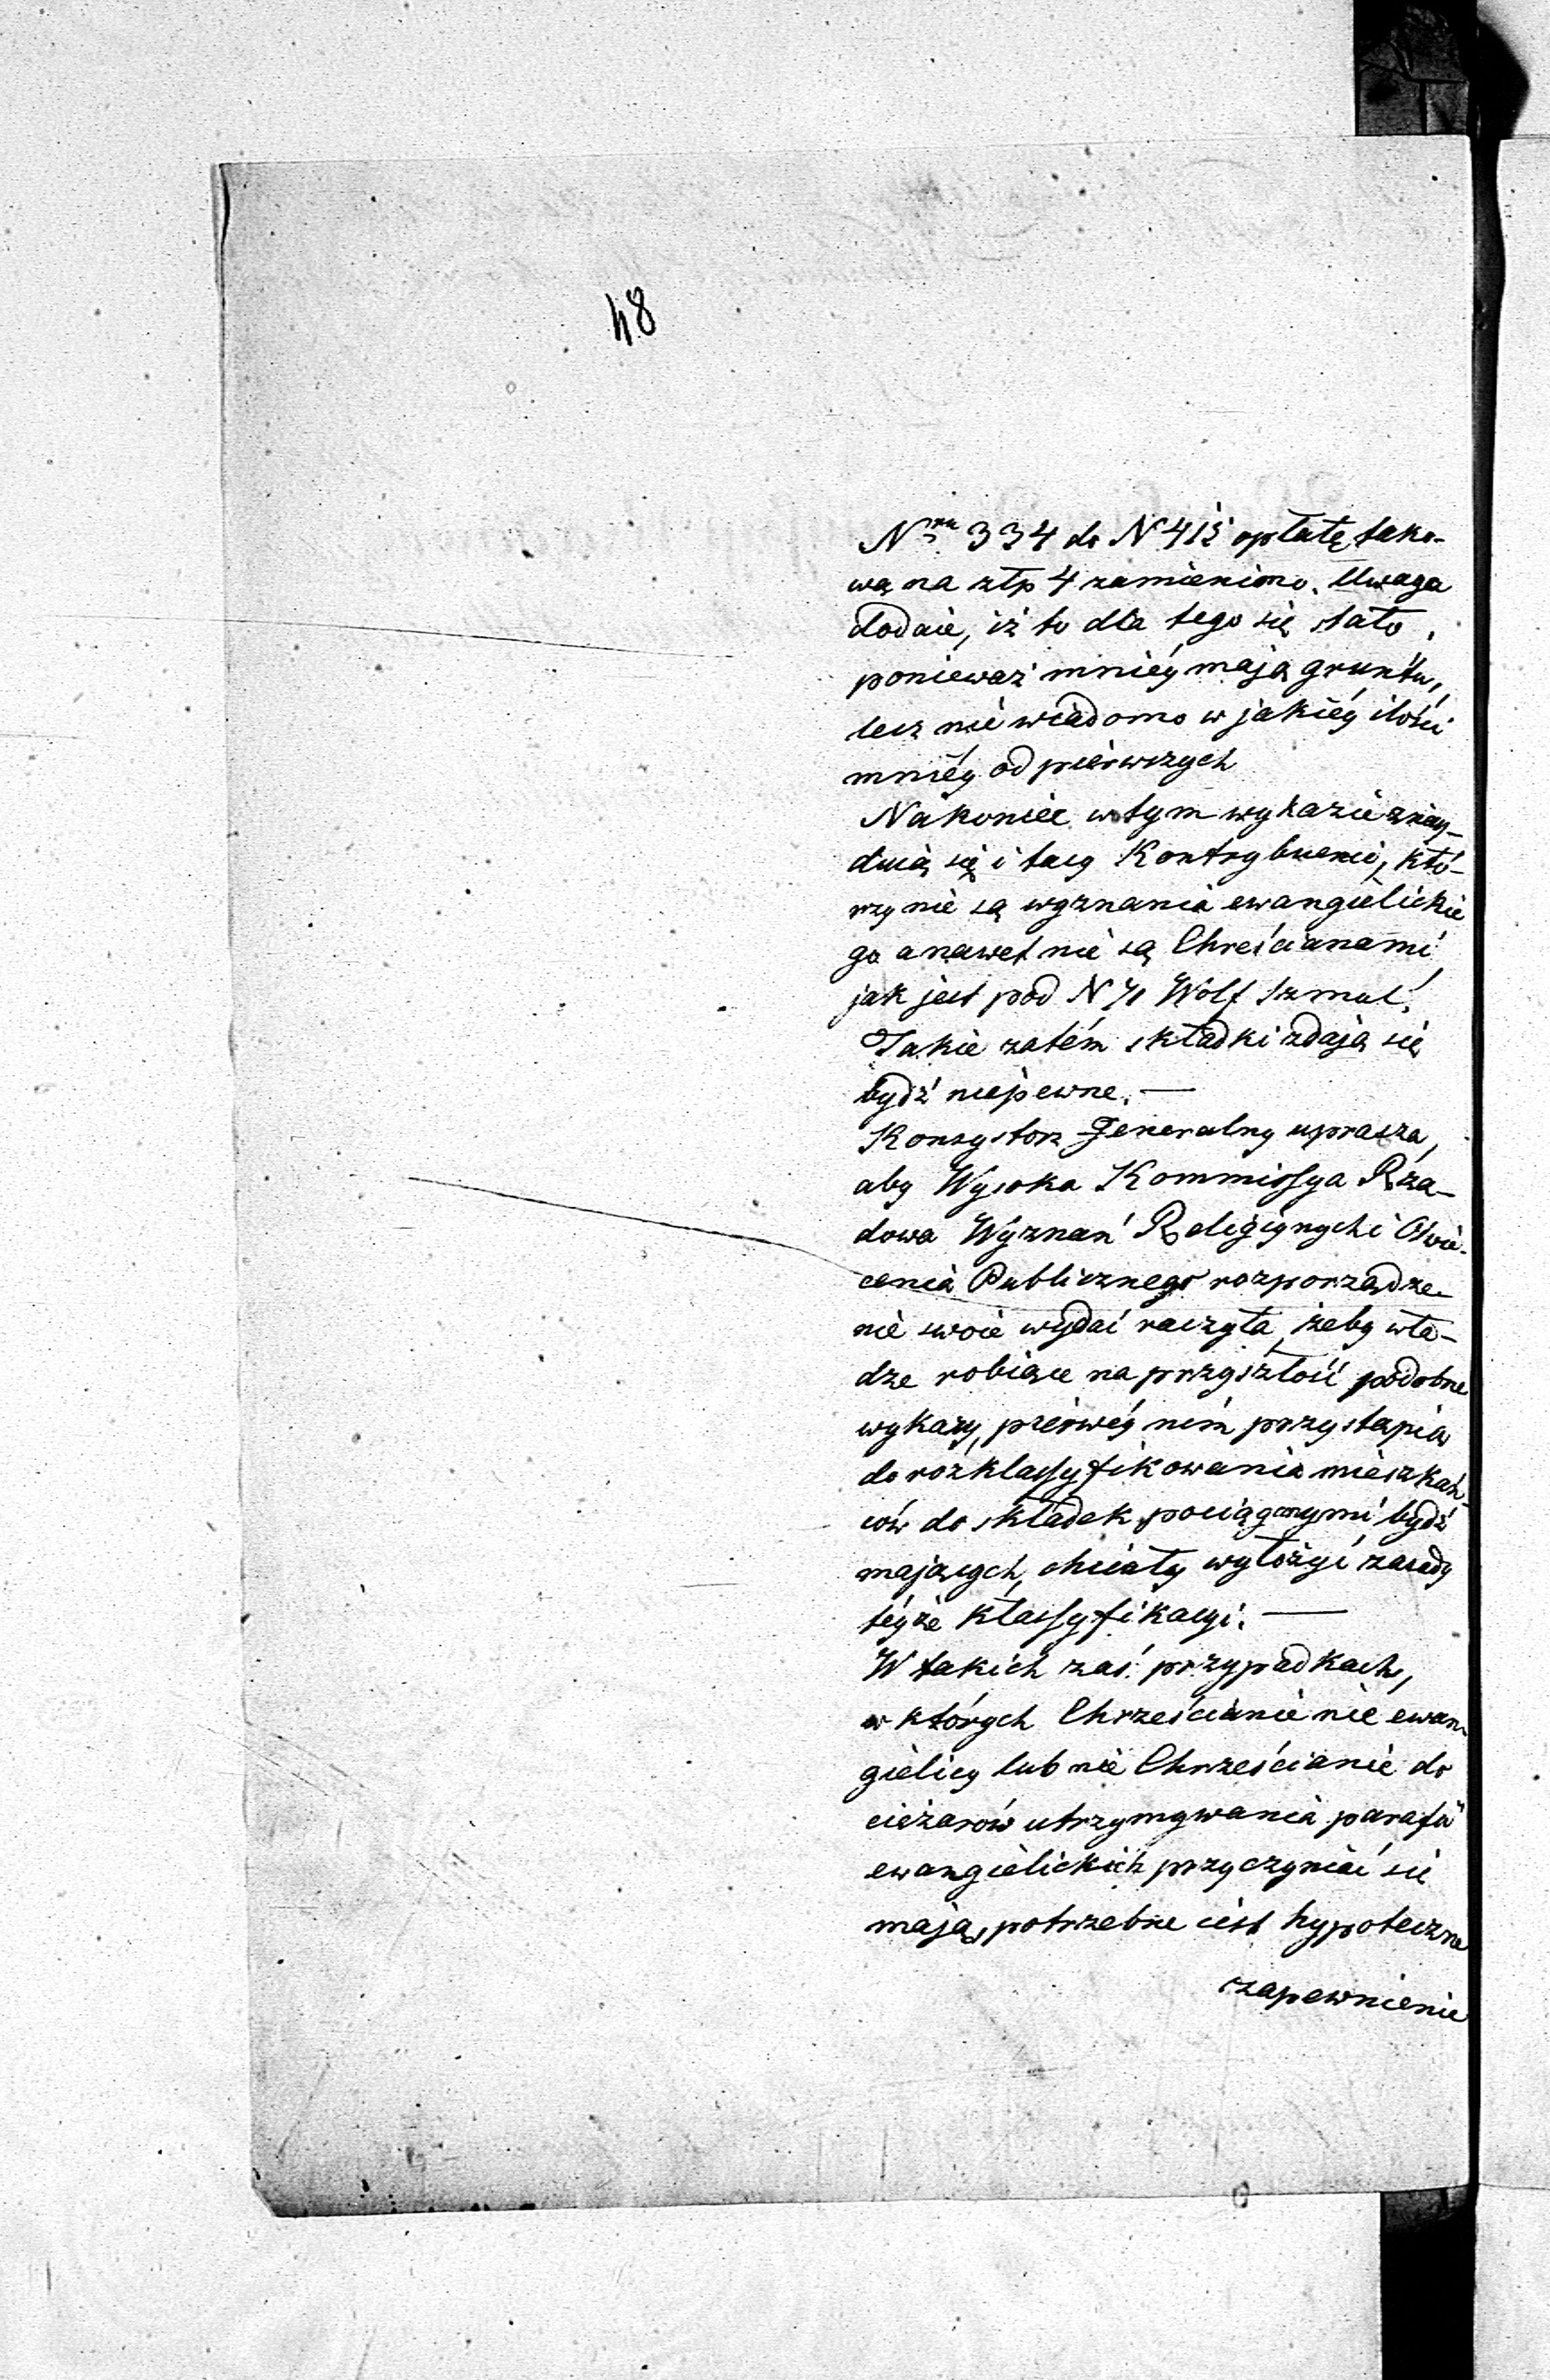 48
Nru 334 do N 415 opłatę tako-
wą na złp 4 zamieniono. Uwaga
dodaie, iż to dla tego się stało,
ponieważ mniéy mają gruntu,
lecz nie wiadomo w jakiéy ilości
mniéy od pierwszych
Nakoniec w tym wykazie znay-
duią się i tacy Kontrybuenci, któ-
rzy nie są wyznania ewangielickie
go a nawet nie są Chreścianami
jak jest pod N 71 Wolf Szmul.
Takie zatém składki zdają się
bydź niepewne. —
Konsystorz Generalny uprasza,
aby Wysoka Kommissya Rzą-
dowa Wyznań Religiynych i Oświe-
cenia Publicznego rozporządze-
nie swoie wydać raczyła, żeby wła-
dze robiące na przyszłość podobne
wykazy, pierwéy nim przystąpią
do rozklassyfikowania mieszkań-
ców do składek pociągnymi bydź
mających, chciały wyłożyć zasady
téyże klassyfikacyi. —
W takich zaś przypadkach,
w których Chrześcianie nie ewan-
gielicy lub nie Chrześcianie do
ciężarów utrzymywania parafii
ewangielickich przyczyniać się
mają, potrzebne iest hypoteczne
zapewnienie